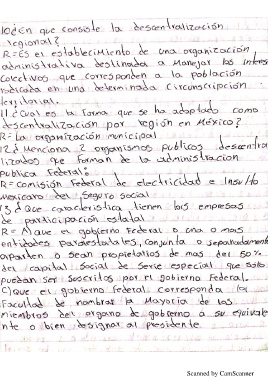 10¿En que consiste la descentralización
regional?
R=Es el establecimiento de una organización
administrativa destinada a manejar los interes
colectivos que corresponden a la población
radicada en una determinada circunscripción
territorial.
11¿Cual es la forma que se ha adoptado como
descentralización por región en México?
R= La organización municipal
12¿Menciona 2 organismos publicos descentra
lizados que forman de la administración
publica Federal?
R=comisión Federal de electricidad e Insituto
mexicano del Seguro social
13¿Que caracteristica tienen las empresas
de participación estatal
R= A)que el gobierno Federal o una o mas
entidades paraestatales, conjunta o separadamente
aparten o sean propietarios de mas del 50%
del capital social de serie especial que solo
puedan ser suscritos por el gobierno Federal
C)que el gobierno Federal corresponda la
Facultad de nombrar la Mayoria de los
miembros del organo de gobierno a su equivale
nte o bien designar al presidente
Scanned by CamScanner